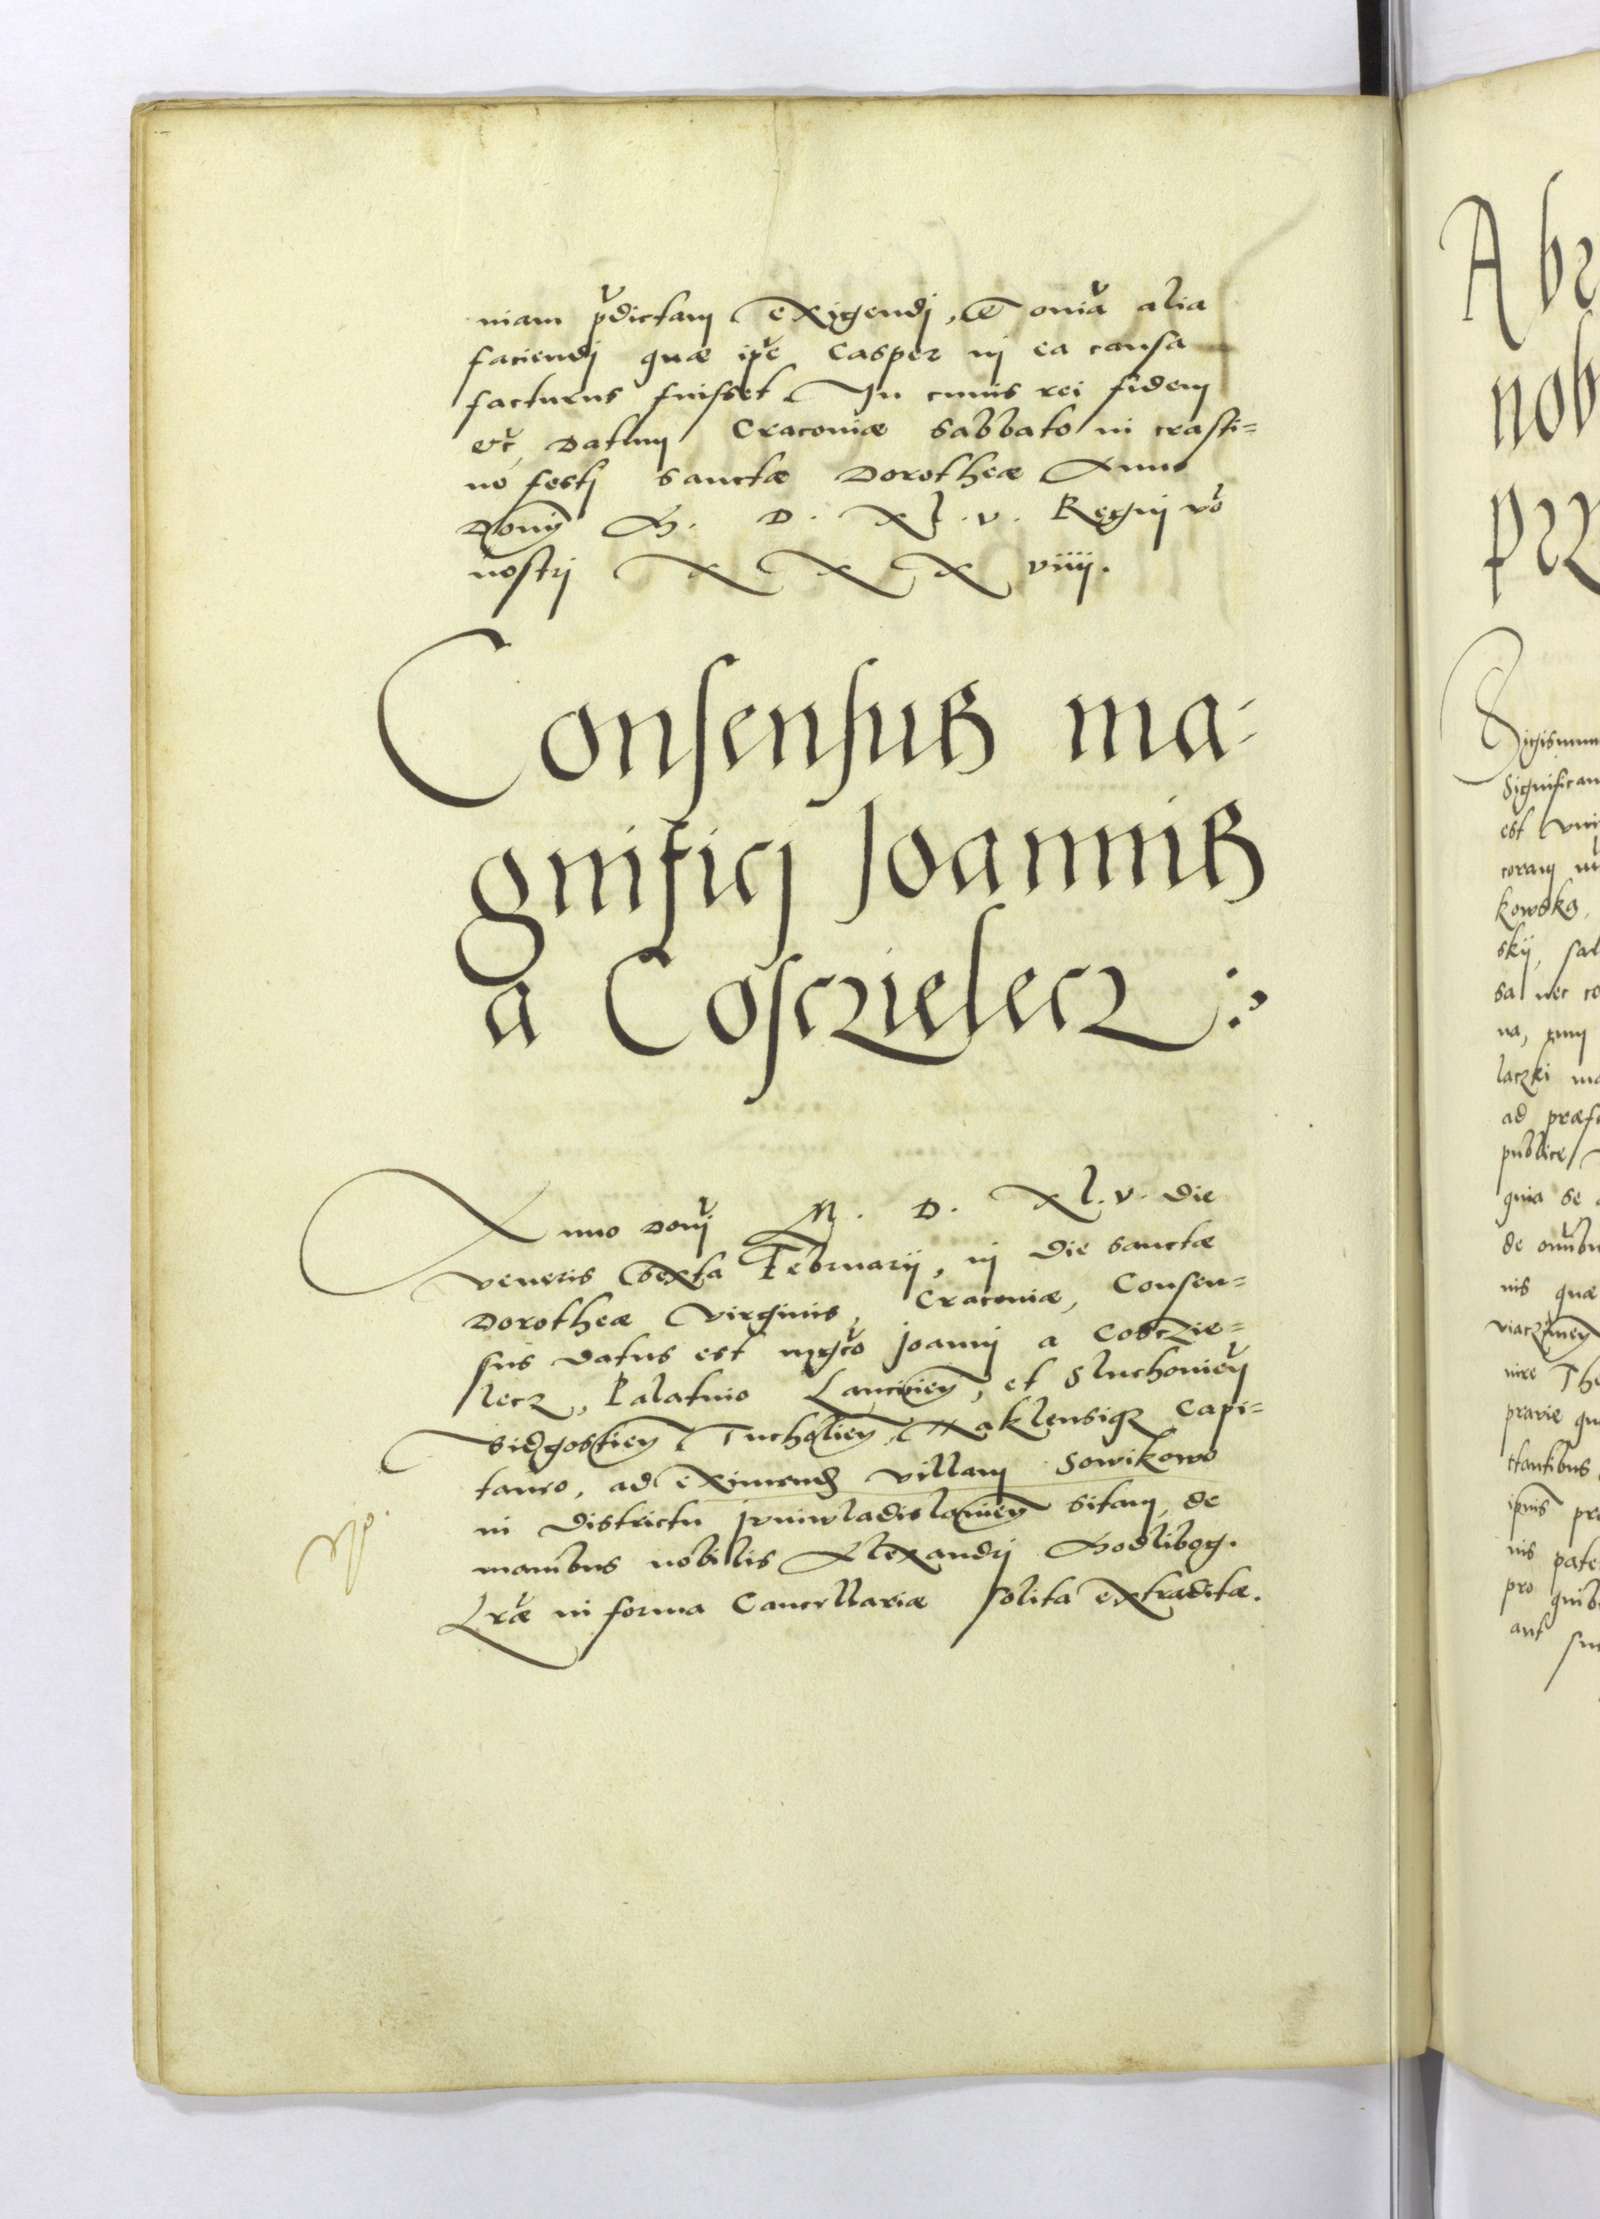 niam p̃dictam exigendj, et om̃ia alia
faciendj quæ ip̃e Casper in ea causa
facturus fuisset. In cuius rei fidem
etc̃, Datum Cracoviæ Sabbato in crasti=
no festj sanctæ Dorotheæ Anno
Domĩ M. D. Xl.v. Regnj vo
nostrj X X X viiij.
Consensus ma-
gnificj Joannis
a Cosczielecz :,
Anno Domĩ M. D. Xl.v. die
veneris sexta Februarij, in die sanctæ
Dorotheæ virginis, Cracoviæ, Consen=
sus datus est mgco Joannj a Cosczie=
lecz, Palatino Lancicien, et Sluchovien
Bidgostien Tucholien Naklensiqz Capi=
taneo, ad eximendã villam Sowikowo
in districtu Juniwladislavien sitam, de
manibus nobilis Alexandrj Godlibog.
Lr̃æ in forma Cancellariæ solita extraditæ.
A
nob
prz
Sigismun
Significam
est
coram
kowska,
skij, sal
sa nec co
na, cum
laczki ma
ad præf
publice
quia se
de om̃ibu
nis quæ
nire The
pravie qu
ctantibus
ipius pr
nis pate
pro quib
aut su